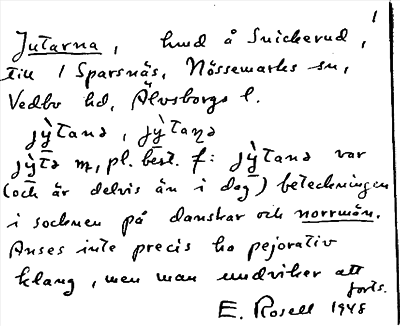 1
Jutarna, hmd å Snickerud,
till 1 Sparsnäs, Nössemarks sn,
Vedbo hd, Älvsborgs l.
jỳtanə, jỳtaṇə
jỳtə m, pl. best. f: jỳtanə var
(och är delvis än i dag) beteckningen
i socknen på danskar och norrmän.
Anses inte precis ha pejorativ
klang, men man undviker att
forts.
E. Rosell 1948